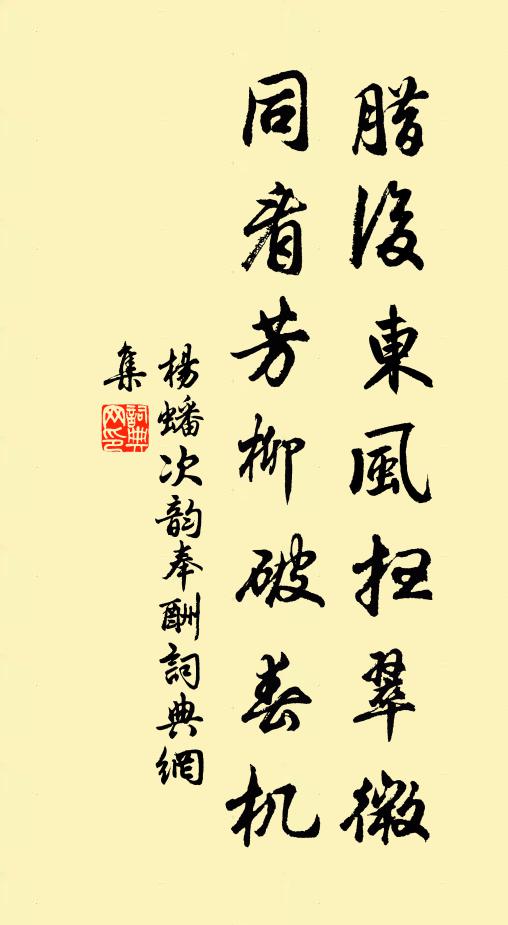 腊後東風扫翠微
同看芳柳破春机
楊蟠次韵奉酬詞典網
集
詞典
网印